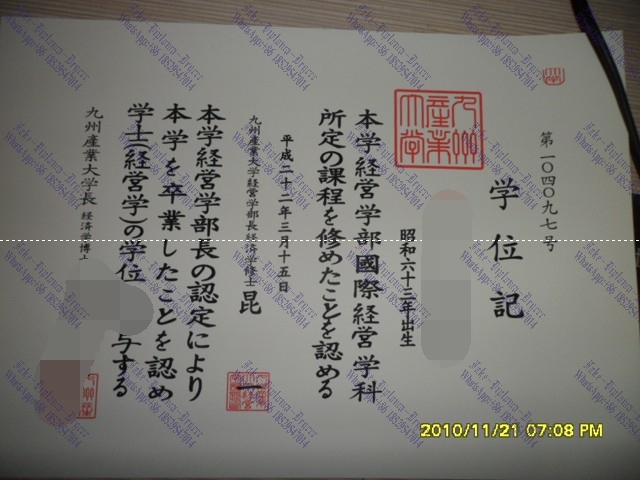 第一〇四〇九七号
学位記
九州産業大学
昭和六十三年出生
本学経営学部國際経営学科
所定の課程を修めたことを認める
平成二十二年三月十五日
九州產業大学経営学部長経済学修士 昆 一
本学経営学部長の認定により
本学を卒業したことを認め
学士(経営学)の学位 与する
九州產業大学長 経済学博士
2010/11/21 07:08 PM